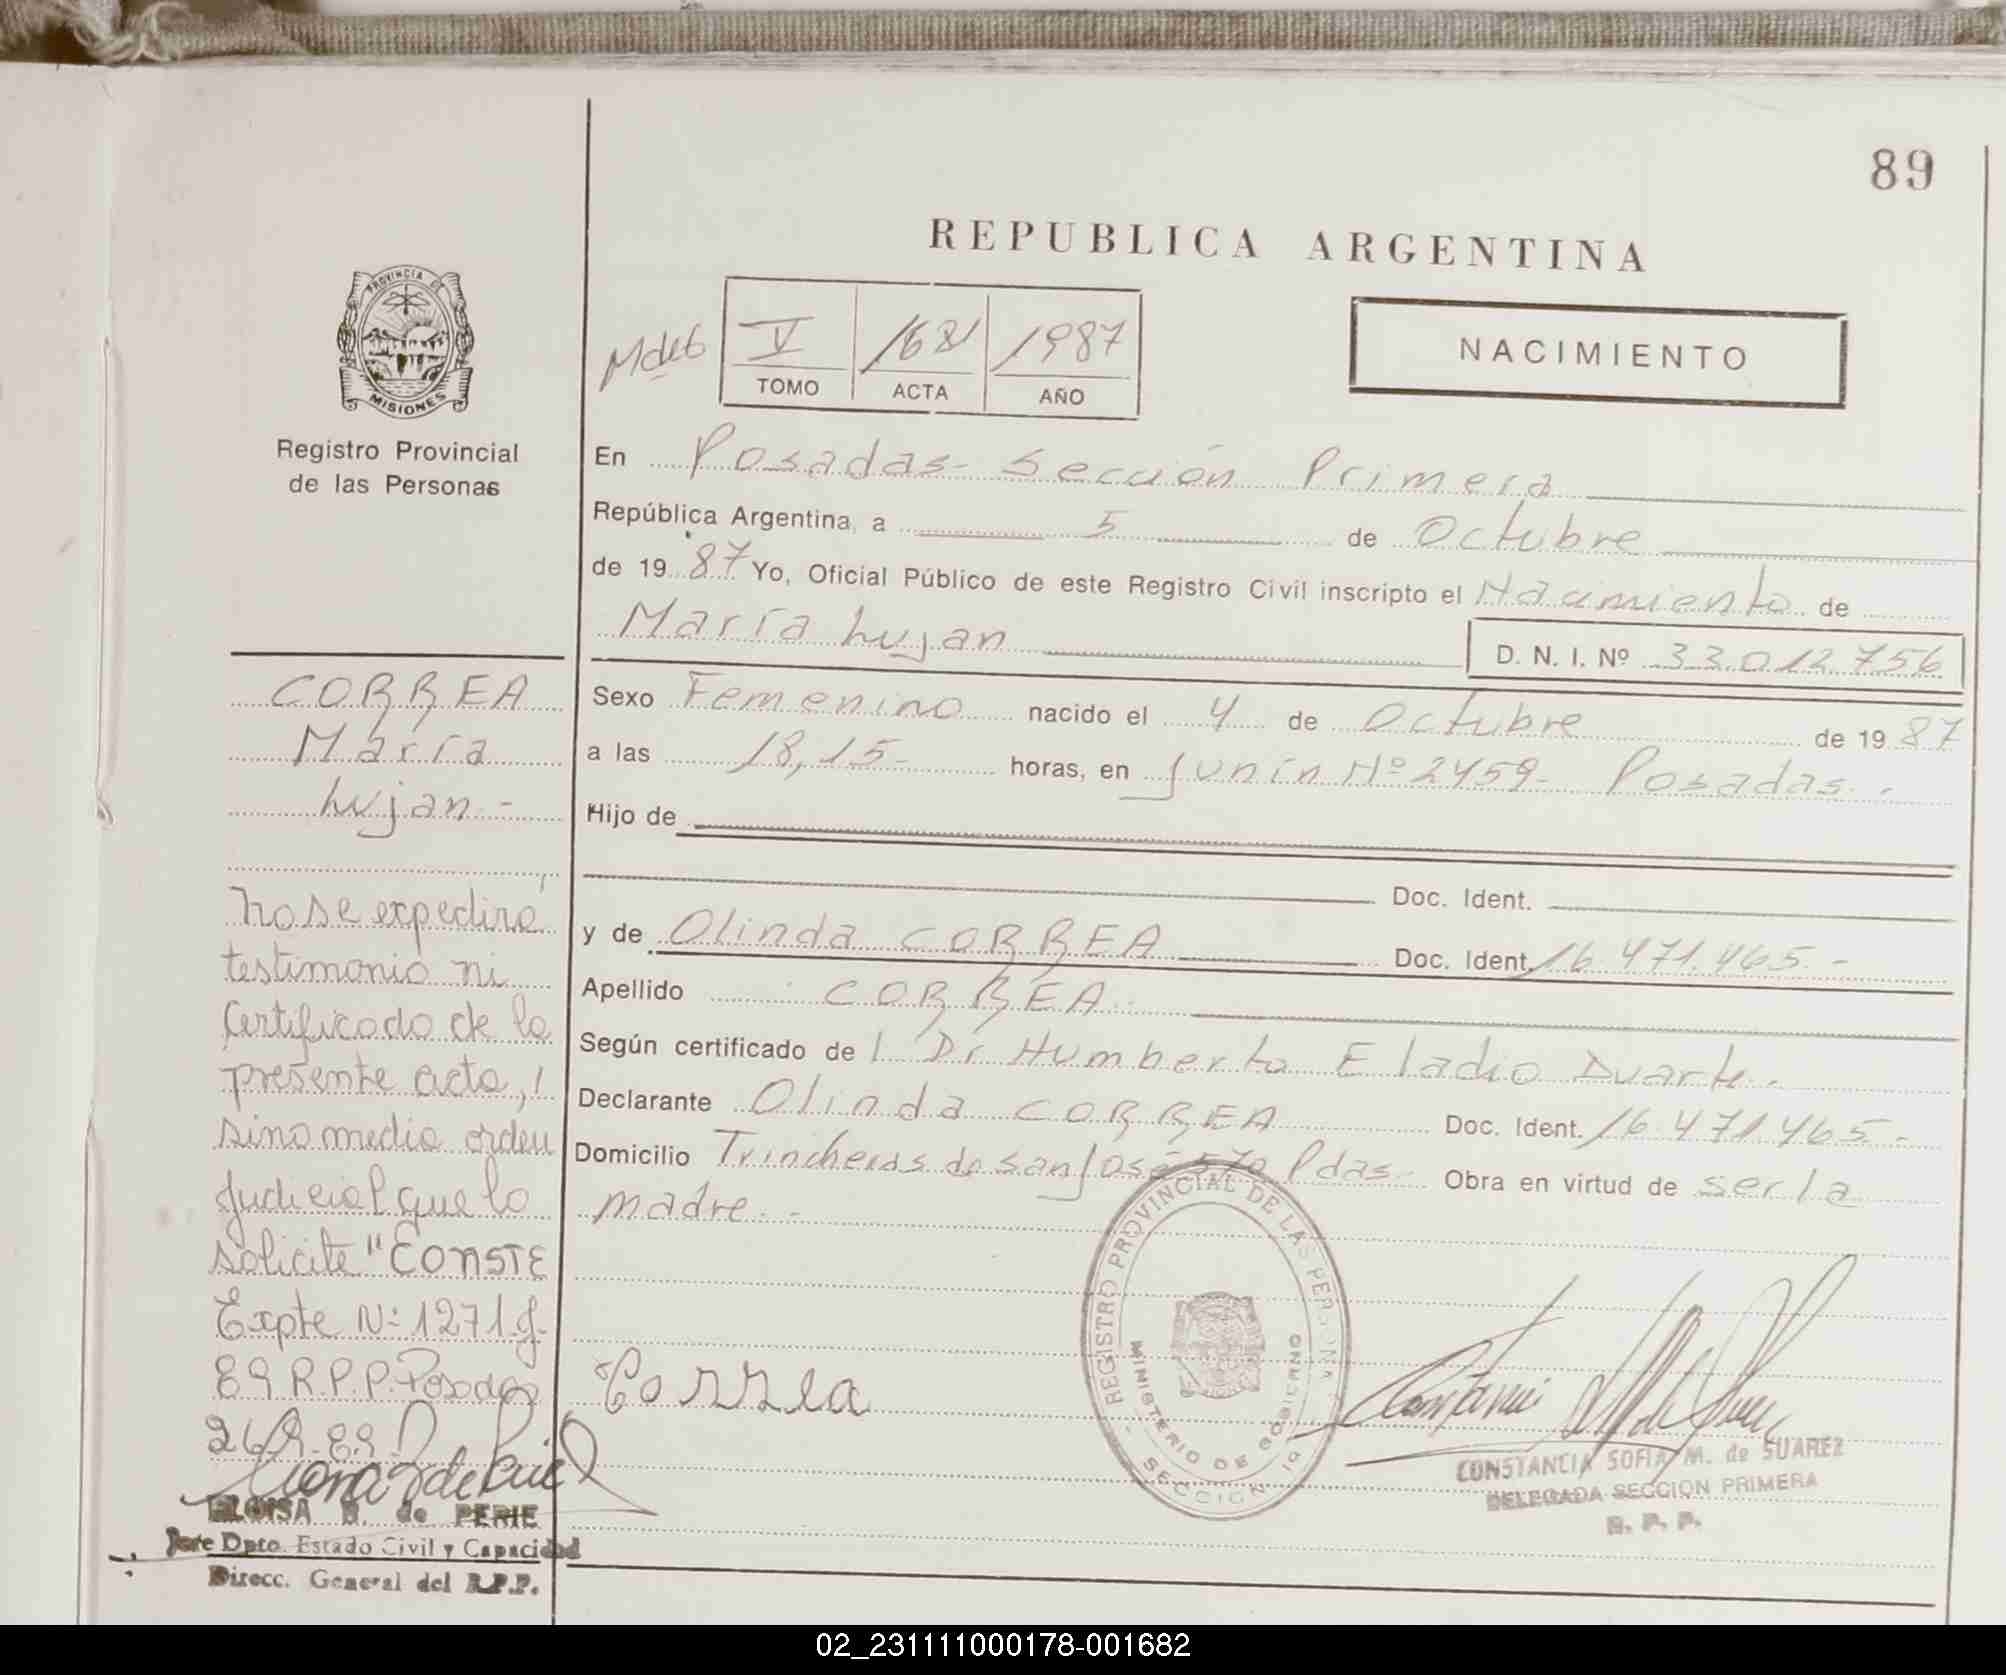 89
REPUBLICA ARGENTINA
PROVINCIA DE
MISIONES
Registro Provincial
de las Personas
V 1681 1987
TOMO ACTA AÑO
NACIMIENTO
En Posadas - Sección Primera
República Argentina, a 5 de Octubre
de 19 87 Yo, Oficial Público de este Registro Civil inscripto el Nacimiento de
María Lujan D. N. I. Nº 33.012.756
Sexo Femenino nacido el 4 de Octubre de 19 87
a las 18,15- horas, en Junín Nº 2459- Posadas.-
Hijo de
Doc. Ident.
y de Olinda CORREA Doc. Ident. 16.471.465.-
Apellido CORREA
Según certificado de l Dr Humberto Eladio Duarte.
Declarante Olinda CORREA Doc. Ident. 16.471.465.-
Domicilio Trincheras de San José 570 Pdas. Obra en virtud de ser la
madre.-
CORREA
María
Lujan.-
No se expedirá
testimonio ni
Certificado de la
presente acta,
sino medie orden
Judicial que lo
solicite "CONSTE
Expte Nº 1271.J.
89 R.P.P. Posadas
Correa
REGISTRO PROVINCIAL DE LAS PERSONAS
MINISTERIO DE GOBIERNO
SECCION 1a
CONSTANCIA SOFIA M. de SUAREZ
DELEGADA SECCION PRIMERA
R. P. P.
ELOISA B. de PERIE
Jefe Dpto. Estado Civil y Capacidad
Direcc. General del R.P.P.
02_231111000178-001682